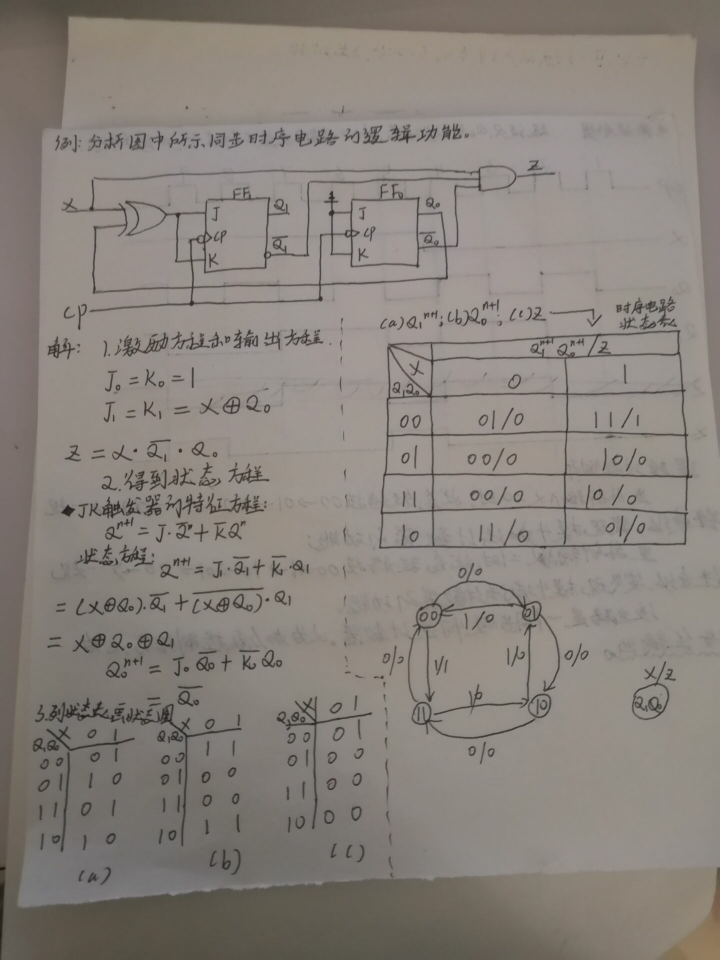 例:分析图中所示同步时序电路的逻辑功能。
Z
FF₁ FF₀
X J Q₁ J Q₀
CP CP
K Q̅₁ K Q̅₀
1
CP
解: 1.激励方程和输出方程.
J₀=K₀=1
J₁=K₁=X⊕Q₀
Z=X·Q̅₁·Q₀
2.得到状态方程
◆JK触发器的特征方程:
Qⁿ⁺¹=J·Q̅ⁿ+K̅Qⁿ
状态方程: Qⁿ⁺¹=J₁·Q̅₁+K̅₁·Q₁
=(X⊕Q₀)·Q̅₁+(X⊕Q₀)̅·Q₁
=X⊕Q₀⊕Q₁
Q₀ⁿ⁺¹=J₀Q̅₀+K̅₀Q₀
=Q̅₀
3.列状态表画状态图
Q₁Q₀ X 0 1
00 0 1
01 1 0
11 0 1
10 1 0
(a)
Q₁Q₀ X 0 1
00 1 1
01 0 0
11 0 0
10 1 1
(b)
Q₁Q₀ X 0 1
00 0 1
01 0 0
11 0 0
10 0 0
(c)
(a)Q₁ⁿ⁺¹;(b)Q₀ⁿ⁺¹;(c)Z
时序电路
状态表
Q₁ⁿ⁺¹Q₀ⁿ⁺¹/Z
Q₁Q₀ X 0 1
00 01/0 11/1
01 00/0 10/0
11 00/0 10/0
10 11/0 01/0
0/0
00 1/0 01
0/0 1/1 1/0 0/0
11 1/0 10
0/0
X/Z
Q₁Q₀